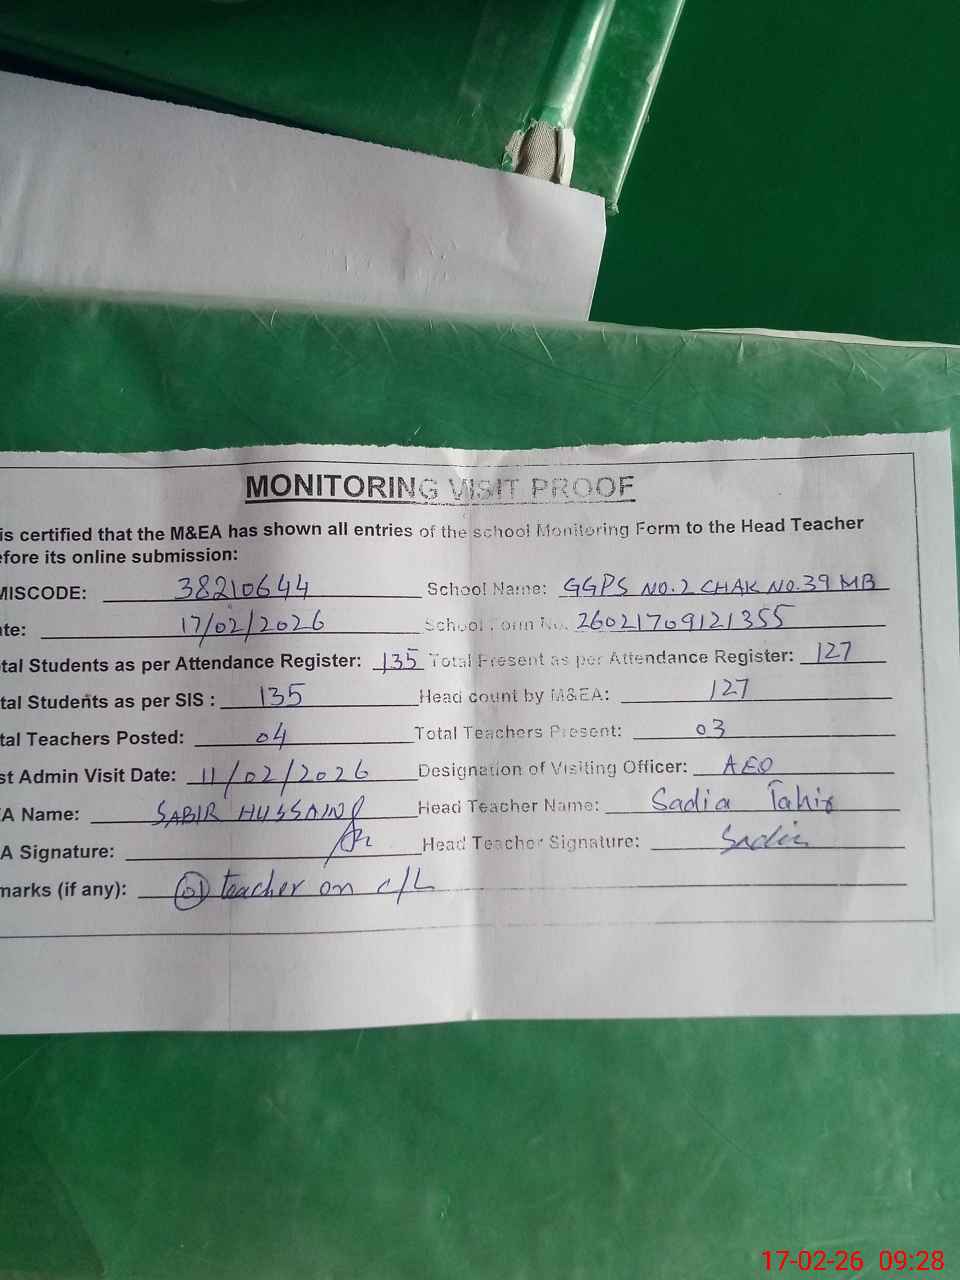 MONITORING VISIT PROOF
is certified that the M&EA has shown all entries of the school Monitoring Form to the Head Teacher
efore its online submission:
MISCODE: 38210644 School Name: GGPS NO.2 CHAK NO.39 MB
te: 17/02/2026 School Form No. 26021709121355
tal Students as per Attendance Register: 135 Total Present as per Attendance Register: 127
tal Students as per SIS : 135 Head count by M&EA: 127
tal Teachers Posted: 04 Total Teachers Present: 03
st Admin Visit Date: 11/02/2026 Designation of Visiting Officer: AEO
A Name: SABIR HUSSAIN Head Teacher Name: Sadia Tahir
A Signature: Head Teacher Signature: Sadia
marks (if any): 01 teacher on c/L
17-02-26 09:28